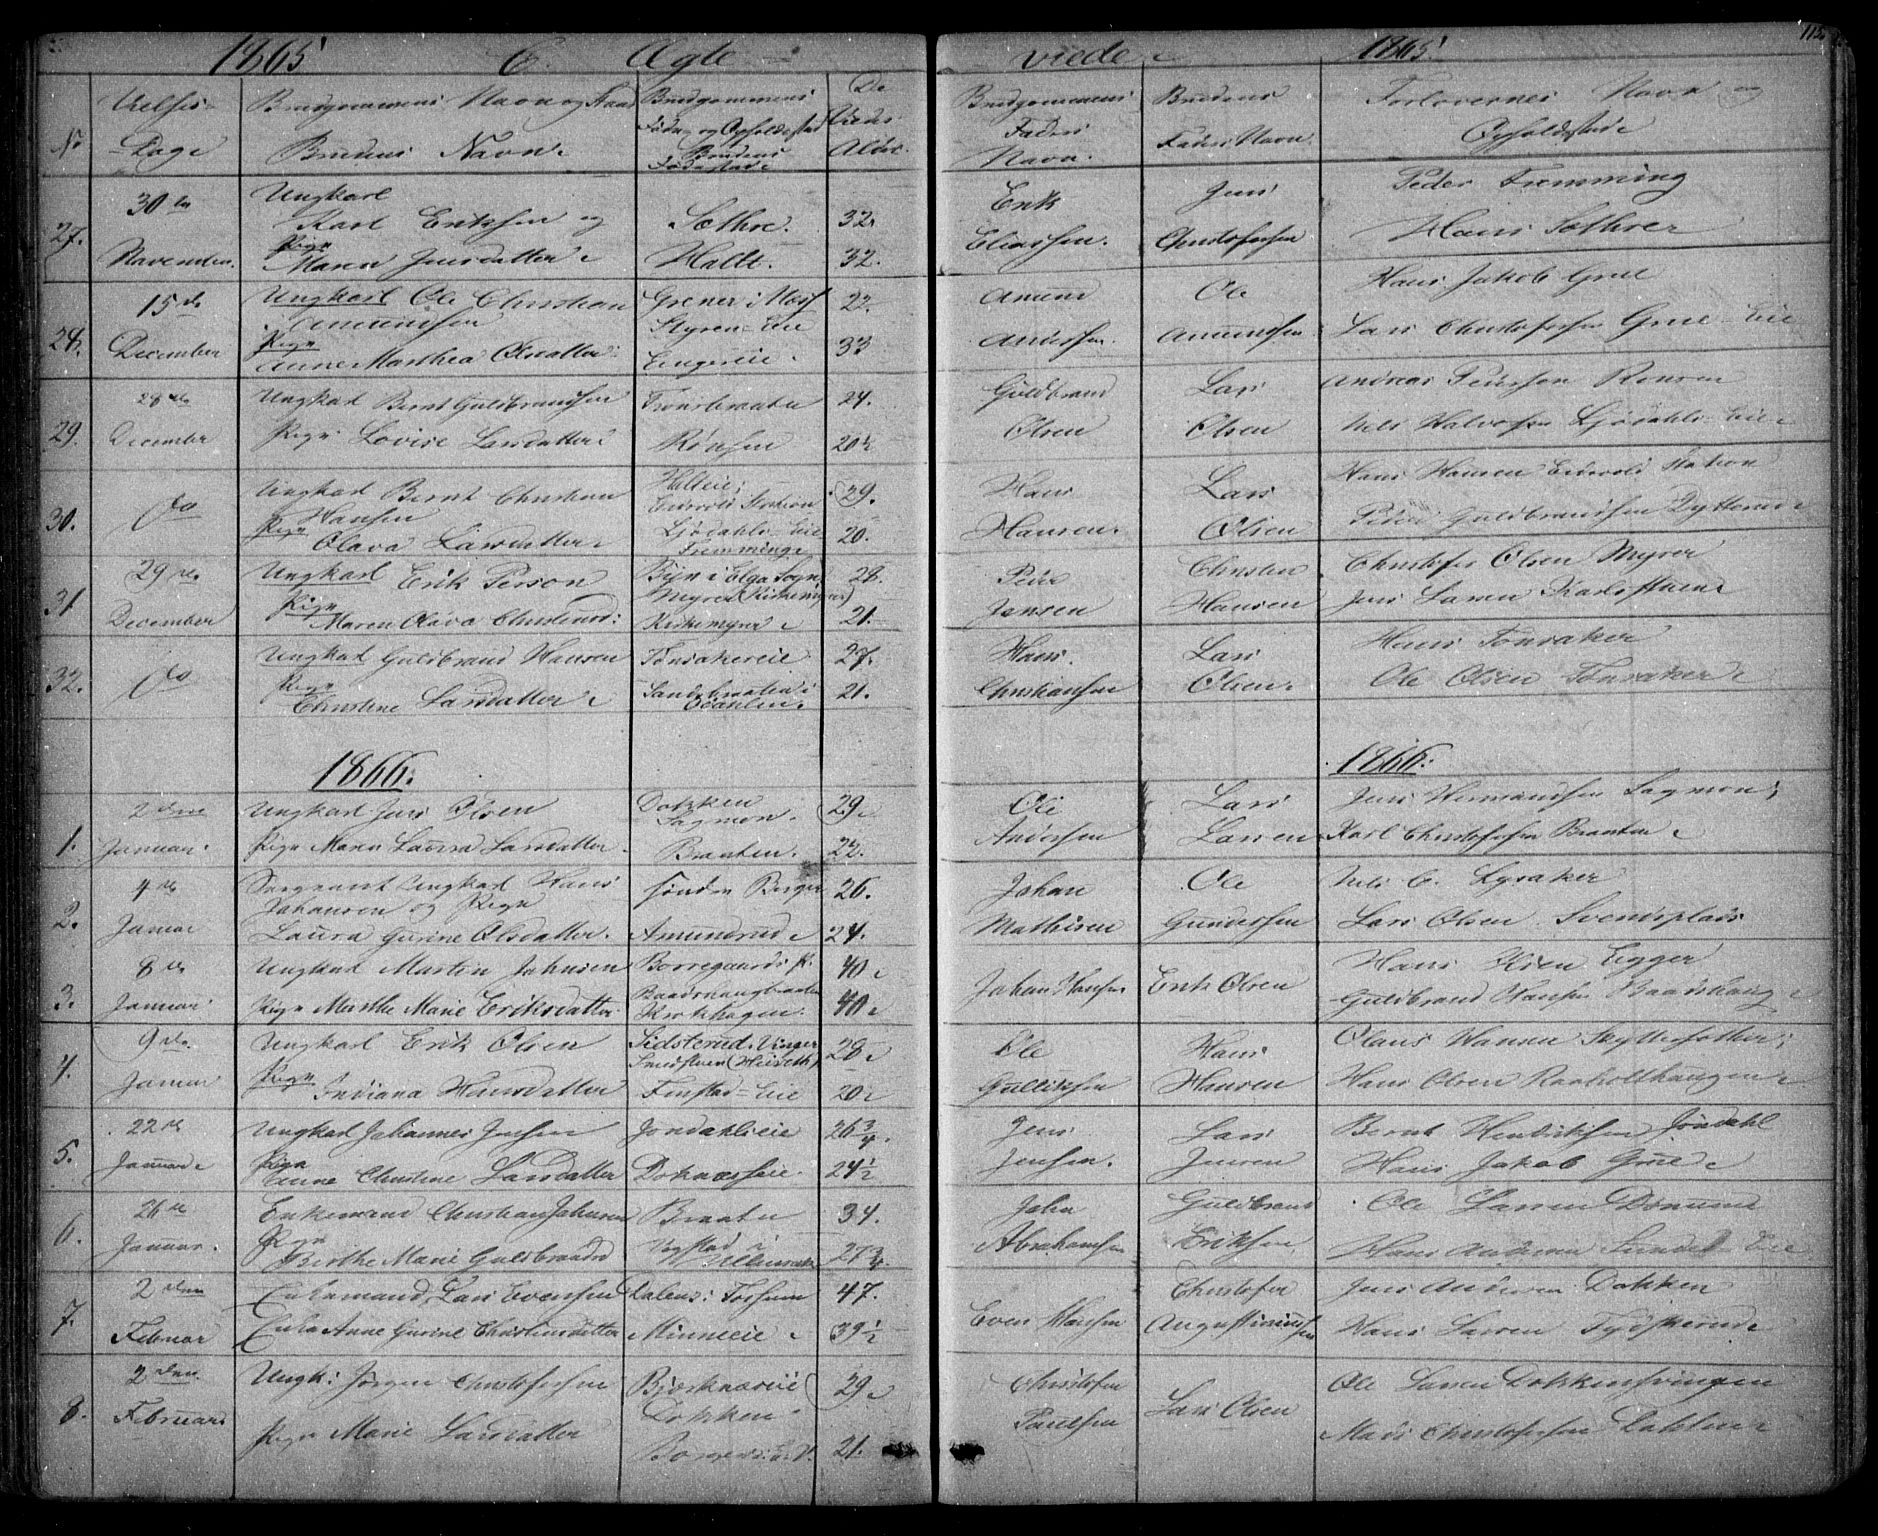 1865 C. Ægte
viede 1865
112.
No
Vielses-
Dage
Brudgommens Navn og
Brudens Navn.
Brudgommens
Føde og Opholdssted
Brudens
Fødested
De
Viedes
Alder.
Brudgommens
Faders
Navn.
Brudens
Faders Navn
Forlovernes Navn og
Opholdsted
27.
30te
November.
Ungkarl
Karl Eriksen og
Pige
Maren Jensdatter
Sæthre.
Holt.
32.
32.
Erik
Eliassen.
Jens
Christophersen
Peder Fremming
Hans Sæthrer
28.
15de
December
Ungkarl Ole Christian
Amundsen
Pige
Anne Marthea Olsdatter.
Grener i
Styren-Eie
22.
33
Amund
Anderssen.
Ole
Amundsen.
Hans Jakob Grue
Lars Christophersen Grue-Eie
29.
28de
December
Ungkarl Bernt Guldbrandsen
Pige Lovise Larsdatter
Trønsbraaten
Rønsen
24.
Guldbrand
Olsen
Lars
Olsen
Andreas Pedersen Rønsen
Nils Halvorsen Ljødahls-Eie
30.
Do
Ungkarl Bernt Christian
Hansen
Pige
Olava Larsdatter
Holteie,
Eidsvold Station
Ljødahls-Eie
Fremming
29.
20.
Hans
Hansen.
Lars
Olsen
Hans Hansen Eidsvold Station
Peder Guldbrandsen Dytterud
31
29de
December
Ungkarl Erik Person
Pige
Maren Olava Christensd:
Byn i Elga Sogn,
Myrer (Kirkemyrer)
Kirkemyrer
28.
21.
Peder
Jansen
Christen
Hansen
Christofer Olsen Myrer
Jens Larsen
32.
Do
Ungkarl Guldbrand Hansen
Pige
Christine Larsdatter
Tønsakereie
Sandsbraaten i
27.
21.
Hans
Christiansen
Lars
Olsen.
Hans Tønsaker
Ole Olsen Tønsaker
1866.
1866.
1.
2den
Januar.
Ungkarl Jens Olsen
Pige Maren Laura Larsdatter.
Dokken
Sagmoen.
Braaten.
29
22.
Ole
Anderssen
Lars
Larsen
Jens Hermandsen Sagmoen,
Karl Christophersen Braaten
2.
4de
Januar
Sergeant Ungkarl Hans
Johansen og Pige
Laura Gurine Olsdatter.
Søndre Berger
Amundrud
26.
24.
Johan
Mathisen
Ole
Gundersen
Nils C. Lysaker
Lars Olsen Svendsplads
3.
8de
Januar
Ungkarl Martin Johnsen
Pige Marthe Marie Eriksdatter
Borregaards P.
Baadshaugbraaten
Krokhagen.
40
40
Johan Hansen
Erik Olsen
Hans Olsen Egger
Guldbrand Hansen Baadshaug
4.
9de
Januar
Ungkarl Erik Olsen
Pige
Indiana Hansdatter
Sidsterud i Vinger
Smedstuen
Finstad-Eie
28
20
Ole
Gulliksen
Hans
Hansen
Olaus Hansen
Hans Olsen Raaholthaugen
5.
22de
Januar
Ungkarl Johannes Jensen
Pige
Anne Christine Larsdatter
Jøndahlseie
Doknæsseie.
26 3/4.
24 1/2
Jens
Jensen.
Lars
Jensen
Bernt Hendriksen Jøndahl
Hans Jakob Grue
6.
26de
Januar.
Enkemand Christian Johnsen
Pige
Berthe Marie Guldbrandsd
Braaten
Vogstad i
Ullensaker
34.
27 3/4
John
Abrahamsen
Guldbrand
Eriksen
Ole Larsen Dønnum
Hans Andersen Sundet Eie
7.
2den
Februar
Enkemand Lars Evensen
Enke Anne Gurine Christiansdatter
Dalens: Forsum
Minneeie
47.
39 1/2
Even Hansen
Christofer
Augustinussen
Jens Andersen Dokken
Hans Larsen Tydskerud
8.
2den
Februar
Ungk: Jørgen Christophersen
Pige Marie Larsdatter
Bjerknæseie
Dokken
29
21.
Christofer
Paulsen
Lars Olsen
Ole Larsen Dokkensvingen
Mads Christophersen Dokken